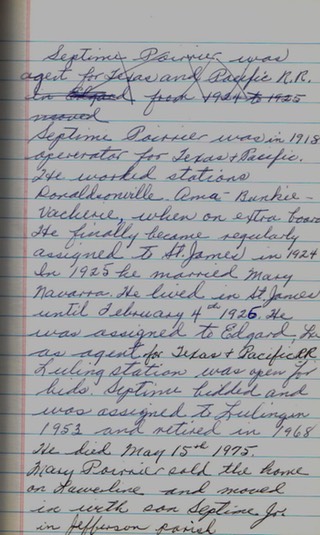 Septime Poirrier was
agent for Texas and Pacific R.R.
in Edgard from 1924 to 1925
moved
Septime Poirrier was in 1918
operator for Texas + Pacific.
He worked stations
Donaldsonville - Ama - Bunkie -
Vacherie, when on extra board
He finally became regularly
assigned to St. James in 1924
In 1925 he married Mary
Navarra. He lived in St. James
until February 4th 1926. He
was assigned to Edgard, La
as agent for Texas + Pacific RR
Luling station was open for
bids. Septime bidded and
was assigned to Luling in
1953 and retired in 1968
He died May 15th 1975.
Mary Poirrier sold the home
on and moved
in with son Septime Jr.
in Jefferson parish